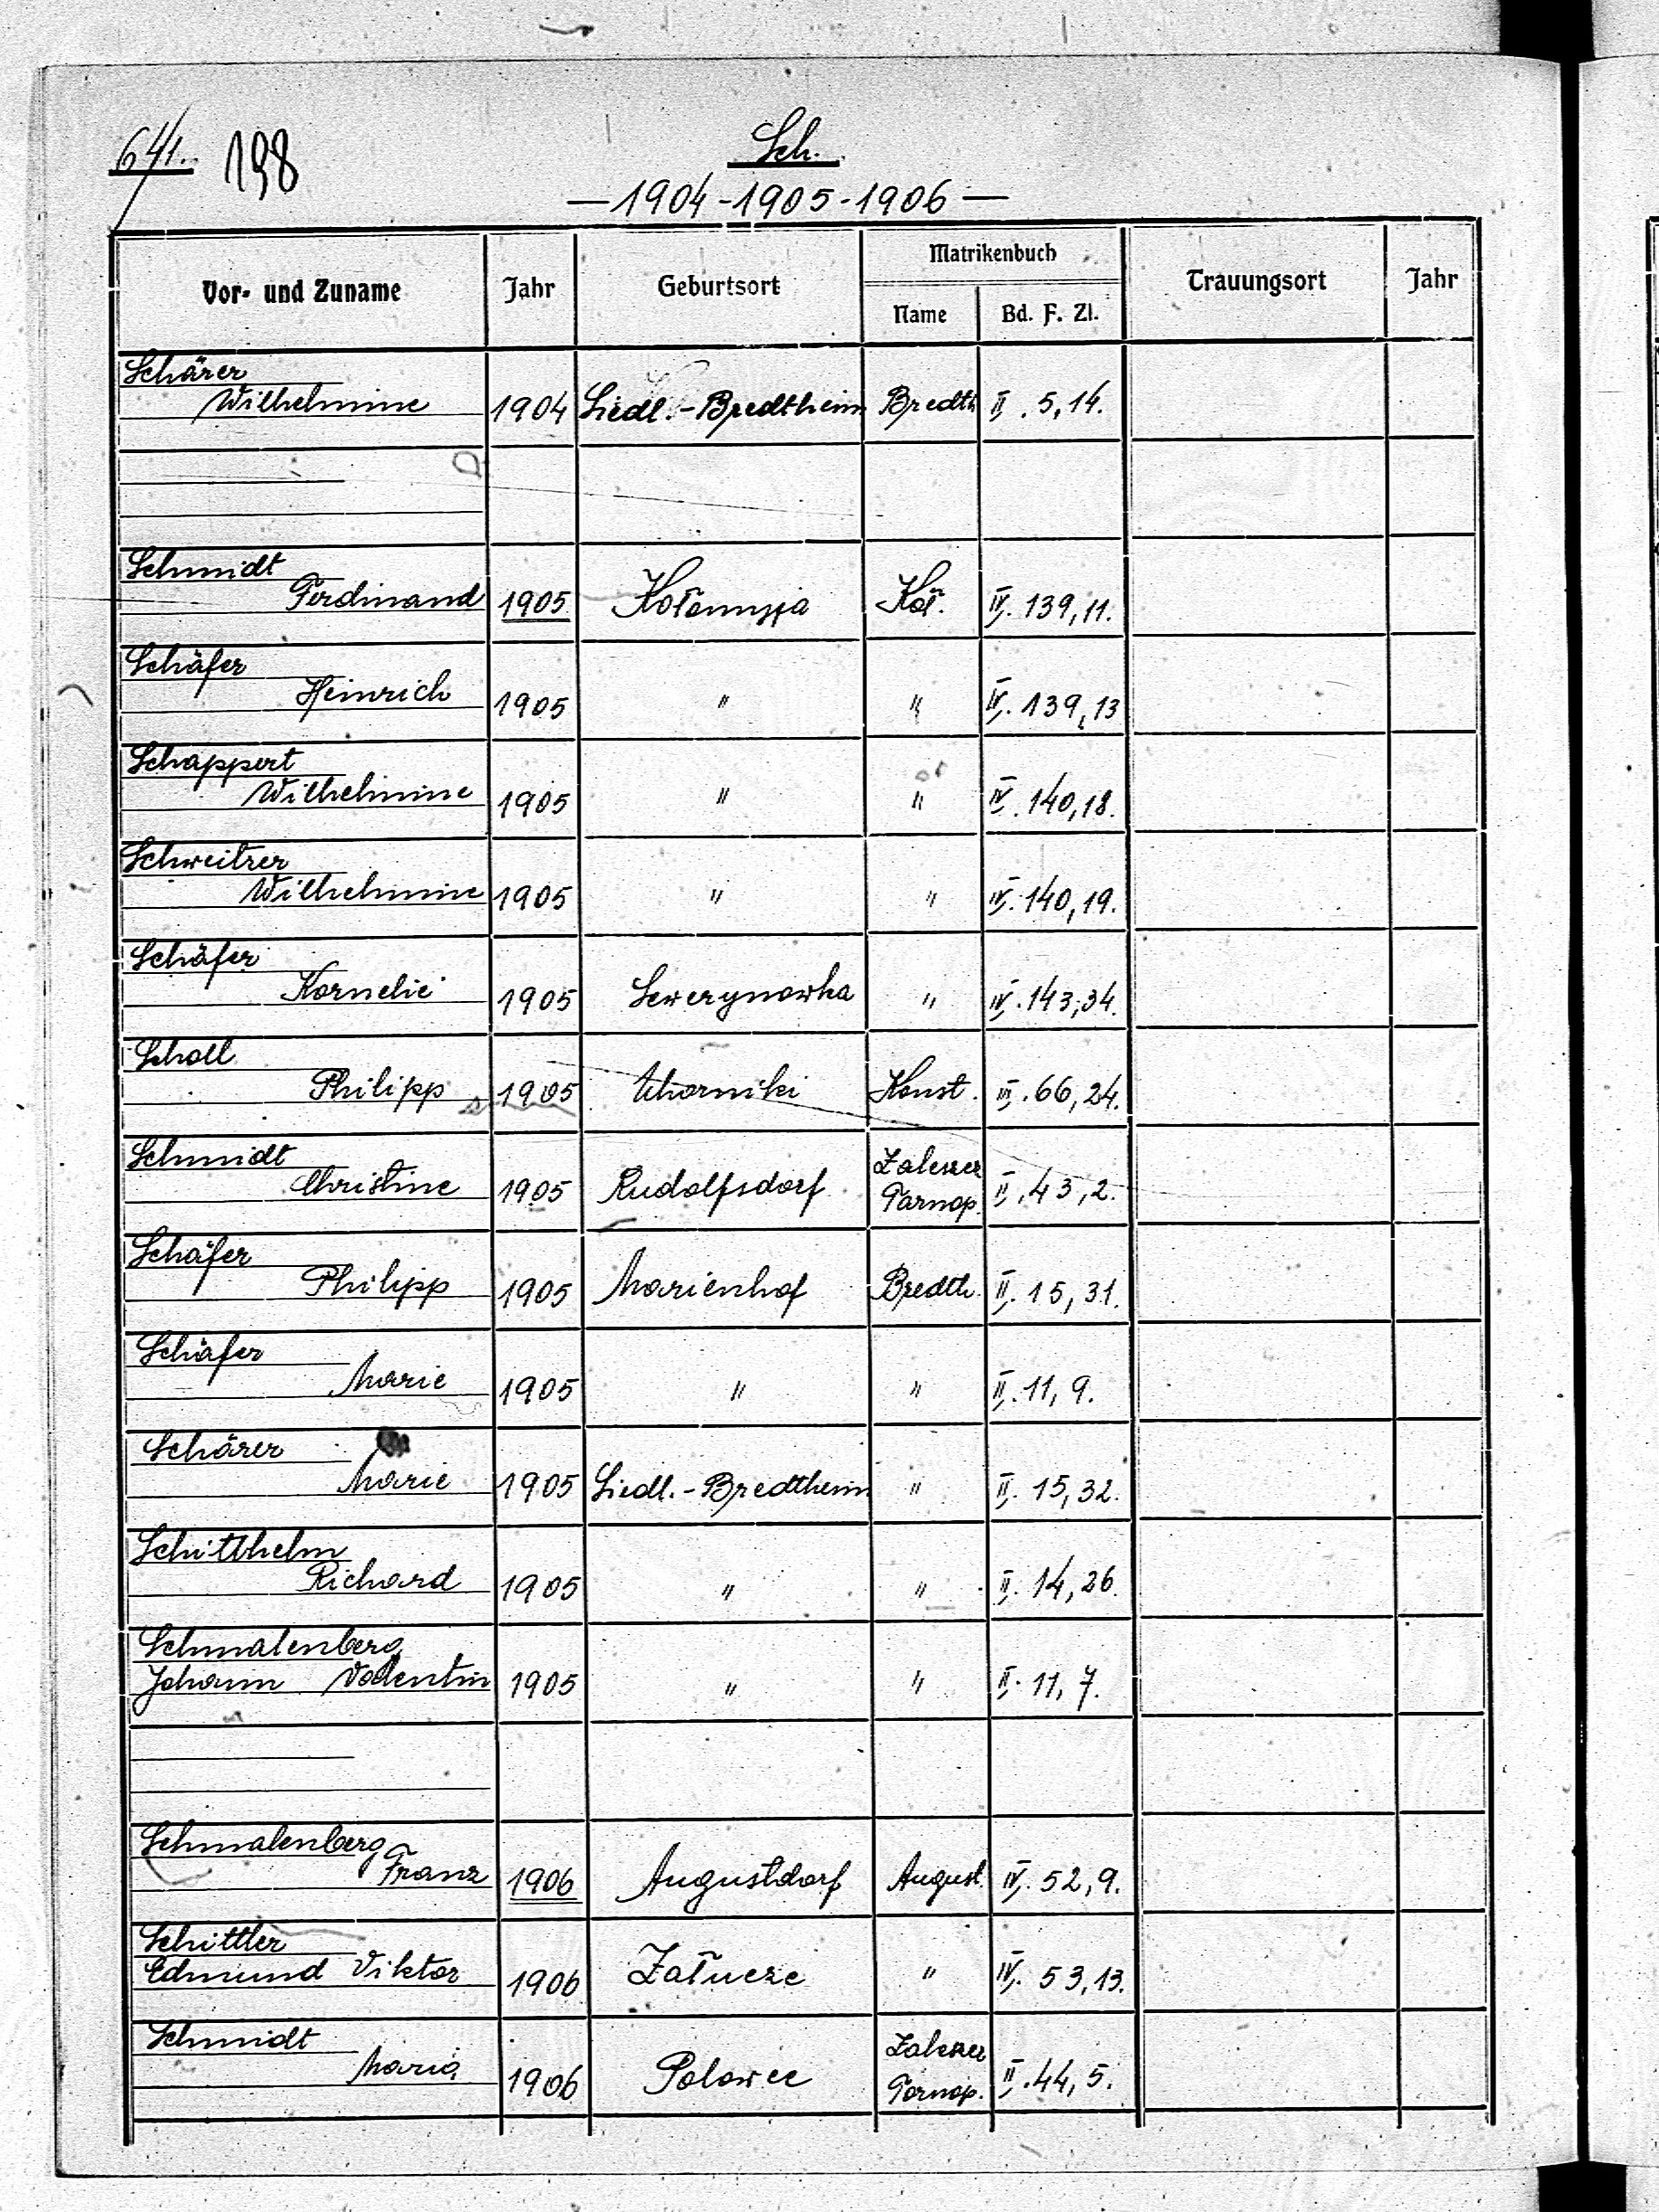 641. 198
Sch.
—1904-1905-1906—
Vor- und Zuname Jahr Geburtsort Matrikenbuch Trauungsort Jahr
Name Bd. F. Zl.
Schärer
Wilhelmine 1904 Siedl.-Bredtheim Bredth II. 5,14.
Schmidt
Ferdinand 1905 Kołomyja Koł. IV. 139,11.
Schäfer
Heinrich 1905 " " IV. 139,13
Schappert
Wilhelmine 1905 " " IV. 140,18.
Schweitzer
Wilhelmine 1905 " " IV. 140,19.
Schäfer
Kornelie 1905 Sewerynowka " IV. 143,34.
Scholl
Philipp 1905 Uhorniki Konst. III. 66,24.
Schmidt
Christine 1905 Rudolfsdorf Zaleszcz Tarnop. II. 43,2.
Schäfer
Philipp 1905 Marienhof Bredth. II. 15,31.
Schäfer
Marie 1905 " " II. 11, 9.
Schärer
Marie 1905 Siedl.-Bredtheim " II. 15,32.
Schitthelm
Richard 1905 " " II. 14,26.
Schmalenberg
Johann Valentin 1905 " " II. 11, 7.
Schmalenberg
Franz 1906 Augustdorf August. IV. 52,9.
Schittler
Edmund Viktor 1906 Załucze " IV. 53,13.
Schmidt
Maria 1906 Polowce Zaleszcz Tarnop. II. 44, 5.